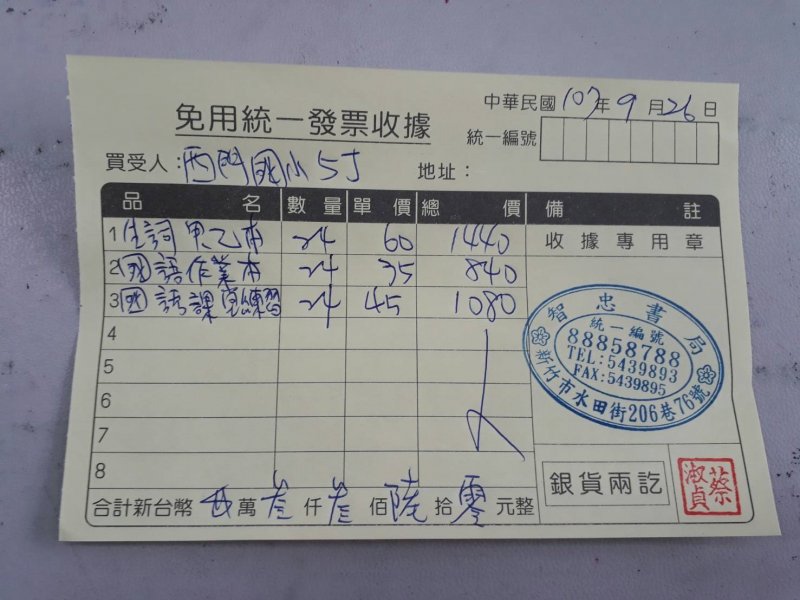 中華民國107年9月26日
免用統一發票收據
統一編號
買受人：西門國小5丁
地址：
品名 數量 單價 總價 備註
1 生詞甲乙本 24 60 1440 收據專用章
2 國語作業本 24 35 840
3 國語課練習 24 45 1080
4
5
6
7
8
智忠書局
統一編號
88858788
TEL:5439893
FAX:5439895
新竹市水田街206巷76號
銀貨兩訖
蔡淑貞
合計新台幣 萬叁仟叁佰陸拾零元整